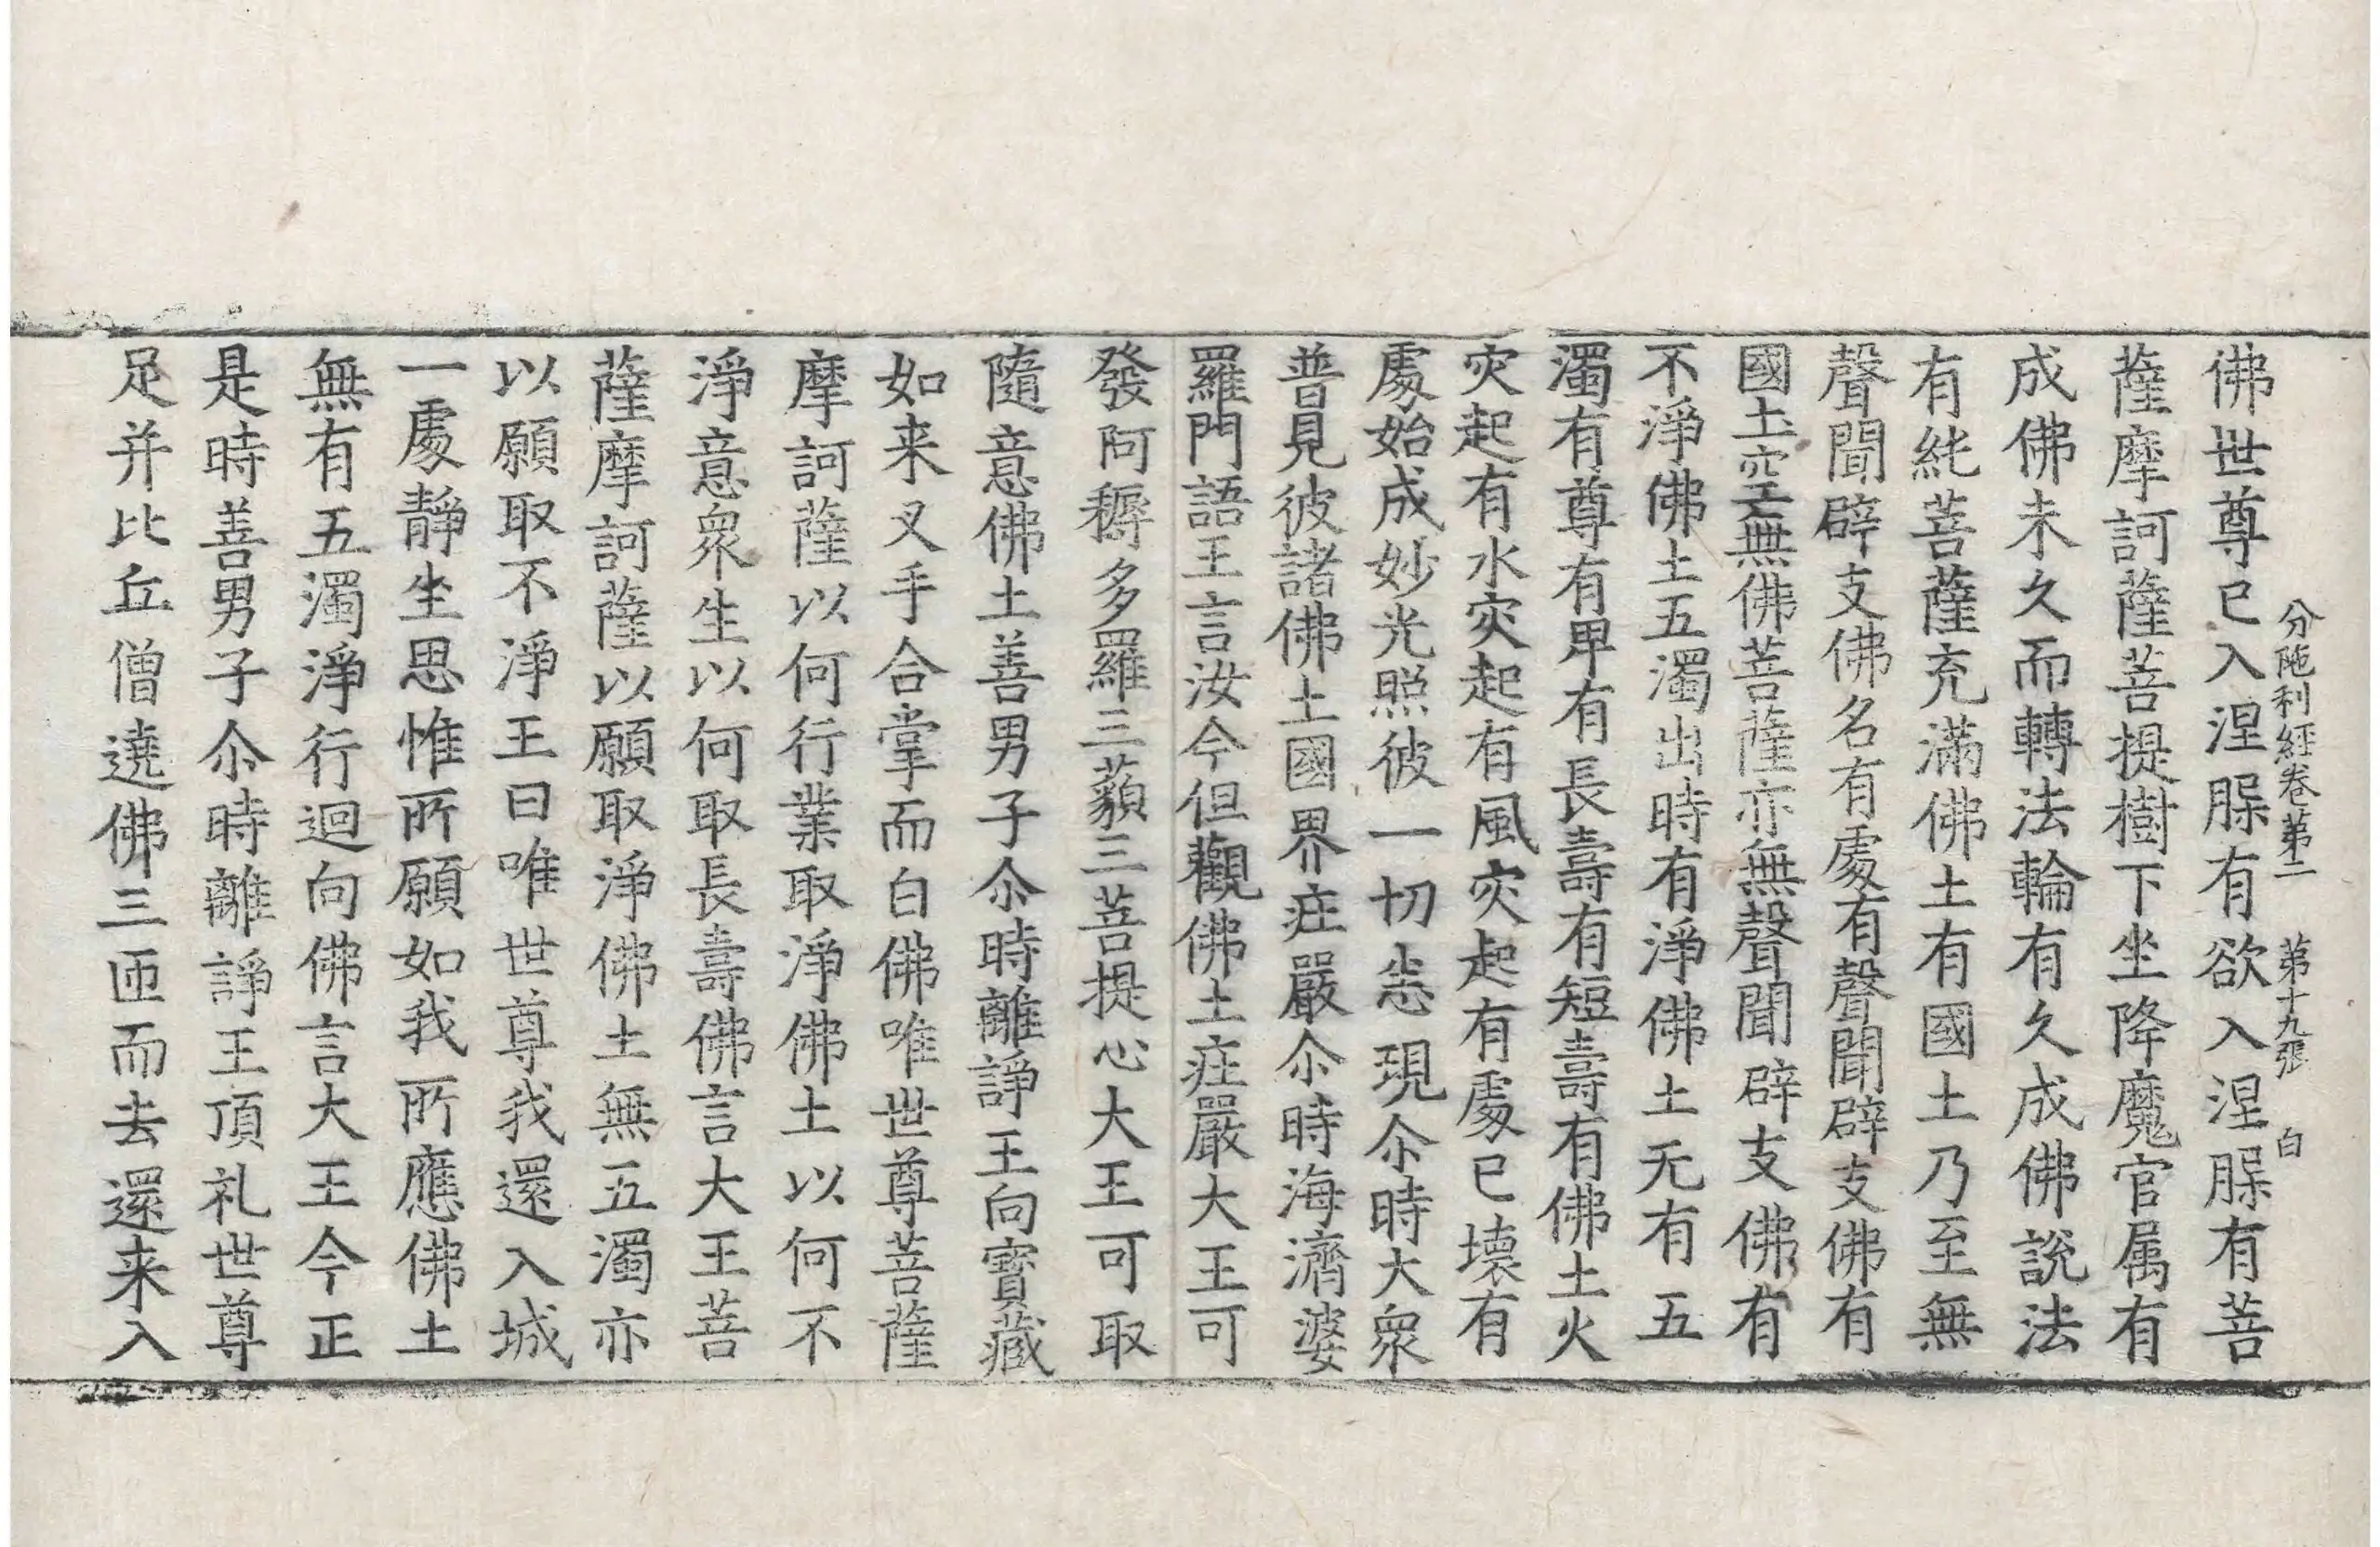 分陁利經卷第二 第十九張 白
佛世尊已入涅槃有欲入涅槃有菩
薩摩訶薩菩提樹下坐降魔官属有
成佛未久而轉法輪有久成佛說法
有純菩薩充滿佛土有國土乃至無
聲聞辟支佛名有處有聲聞辟支佛有
國土空無佛菩薩亦無聲聞辟支佛有
不淨佛土五濁出時有淨佛土无有五
濁有尊有卑有長壽有短壽有佛土火
灾起有水灾起有風灾起有處已壞有
處始成妙光照彼一切悉現尒時大衆
普見彼諸佛土國界莊嚴尒時海濟婆
羅門語王言汝今但觀佛土莊嚴大王可
發阿耨多羅三藐三菩提心大王可取
隨意佛土善男子尒時離諍王向寶藏
如来叉手合掌而白佛唯世尊菩薩
摩訶薩以何行業取淨佛土以何不
淨意衆生以何取長壽佛言大王菩
薩摩訶薩以願取淨佛土無五濁亦
以願取不淨王曰唯世尊我還入城
一處靜坐思惟所願如我所應佛土
無有五濁淨行迴向佛言大王今正
是時善男子尒時離諍王頂礼世尊
足并比丘僧遶佛三匝而去還来入